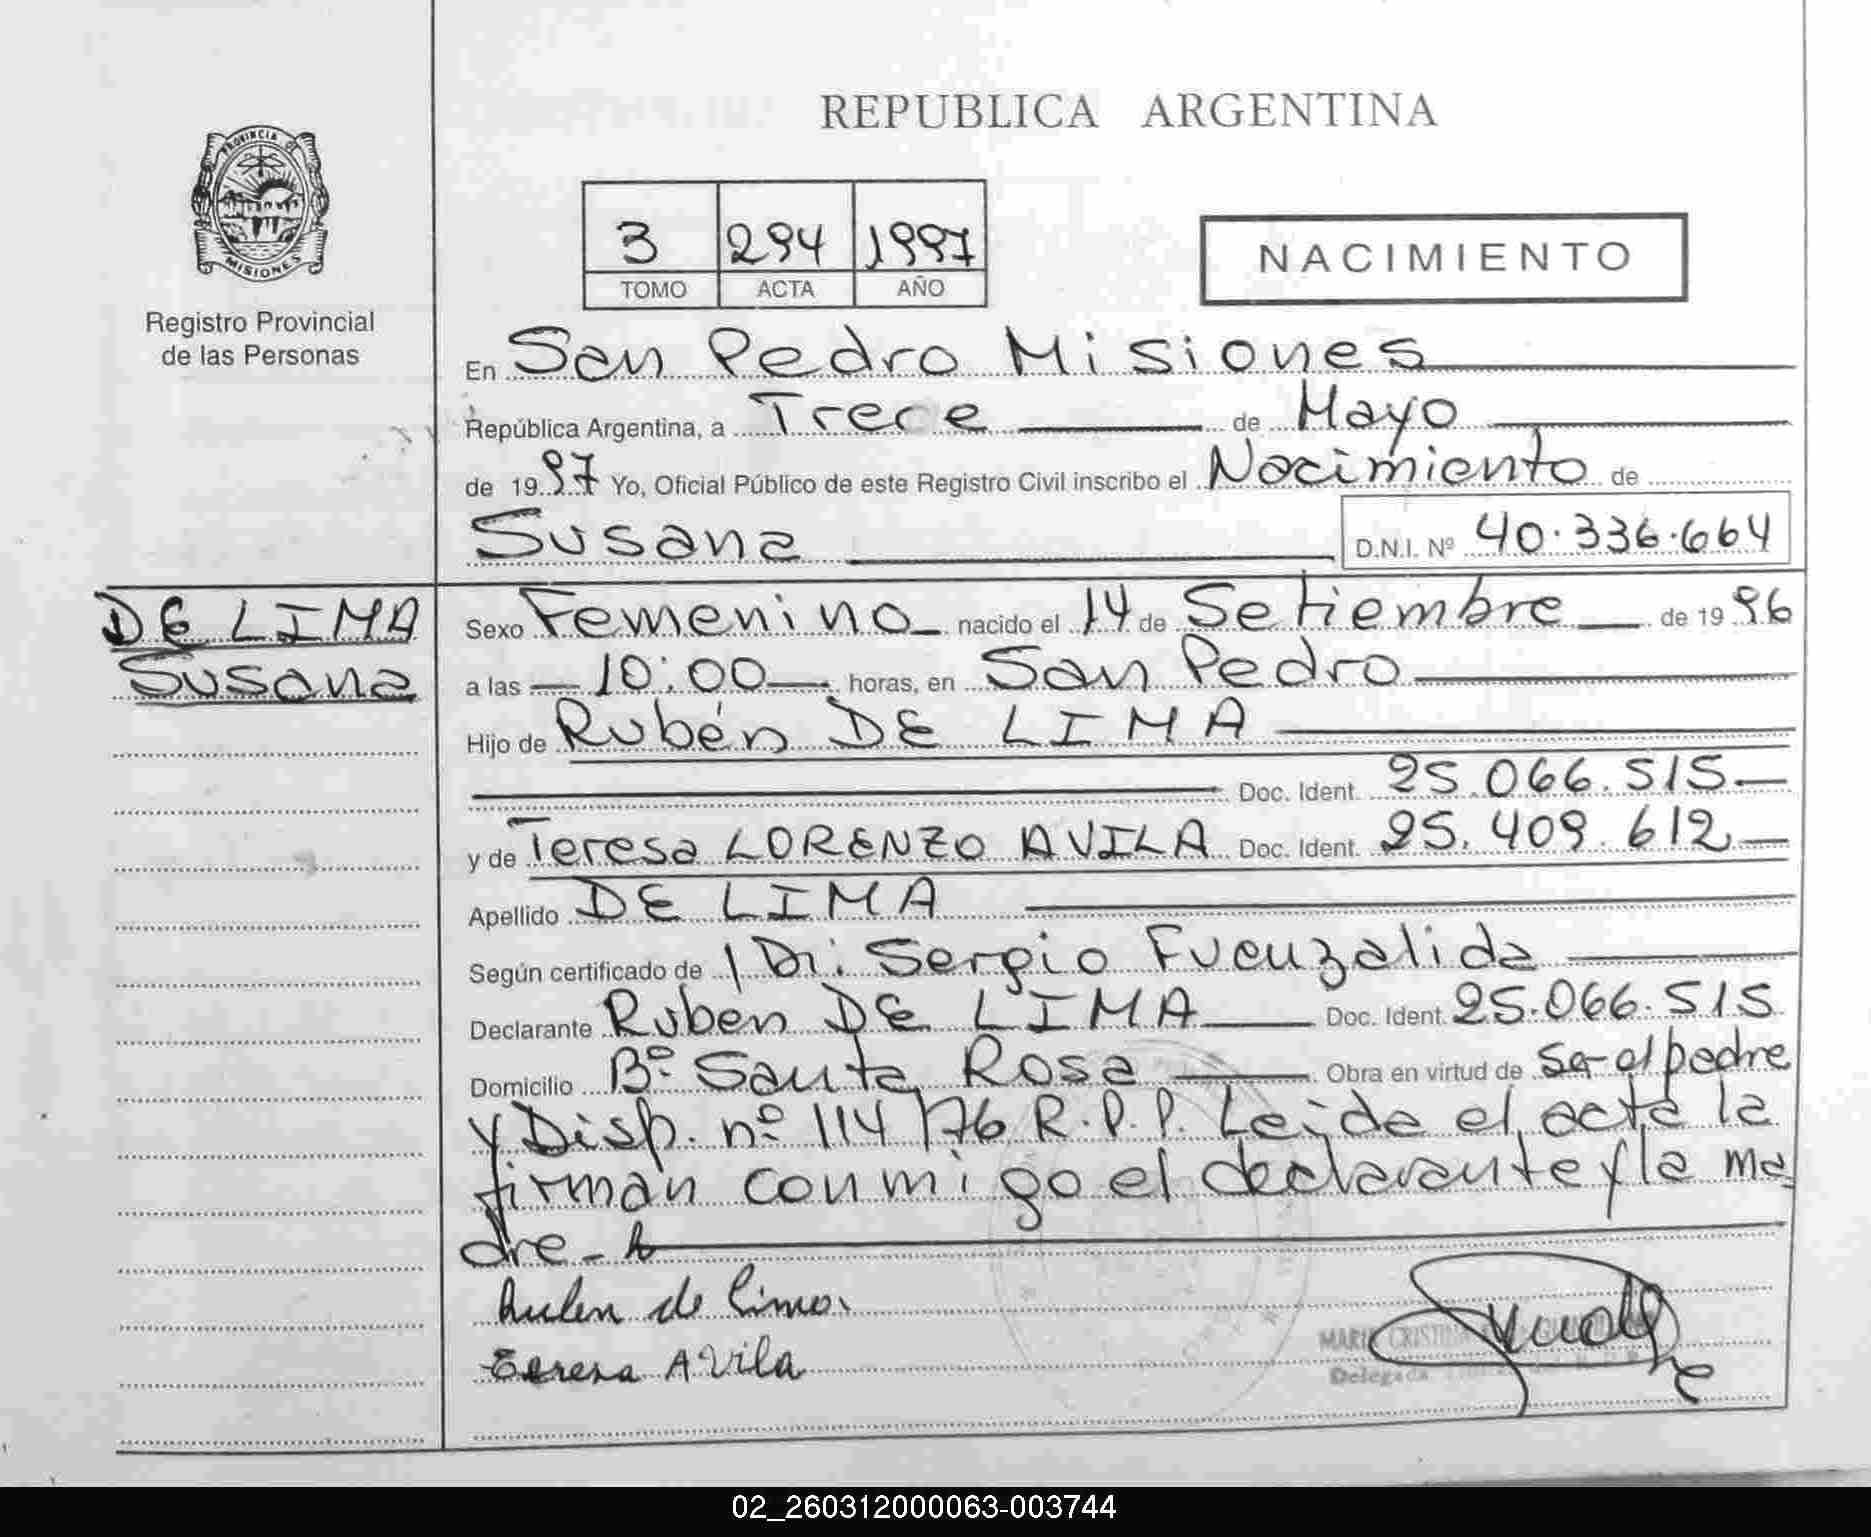 PROVINCIA DE
MISIONES
Registro Provincial
de las Personas
REPUBLICA ARGENTINA
3 294 1997
TOMO ACTA AÑO
NACIMIENTO
En San Pedro Misiones
República Argentina, a Trece de Mayo
de 1997 Yo, Oficial Público de este Registro Civil inscribo el Nacimiento de
Susana D.N.I. Nº 40.336.664
DE LIMA
Susana
Sexo Femenino nacido el 14 de Setiembre de 1996
a las 10:00 horas, en San Pedro
Hijo de Rubén DE LIMA
Doc. Ident. 25.066.515
y de Teresa LORENZO AVILA Doc. Ident. 25.409.612
Apellido DE LIMA
Según certificado de Sergio
Declarante Rubén DE LIMA Doc. Ident. 25.066.515
Domicilio Bº Santa Rosa Obra en virtud de el padre
y Disp. nº 114/76 R.P.P. Leida el acta la
firman conmigo el declarante y la ma
dre
Ruben de Lima
Teresa AVila
MARIA CRISTINA
Delegada
02_260312000063-003744